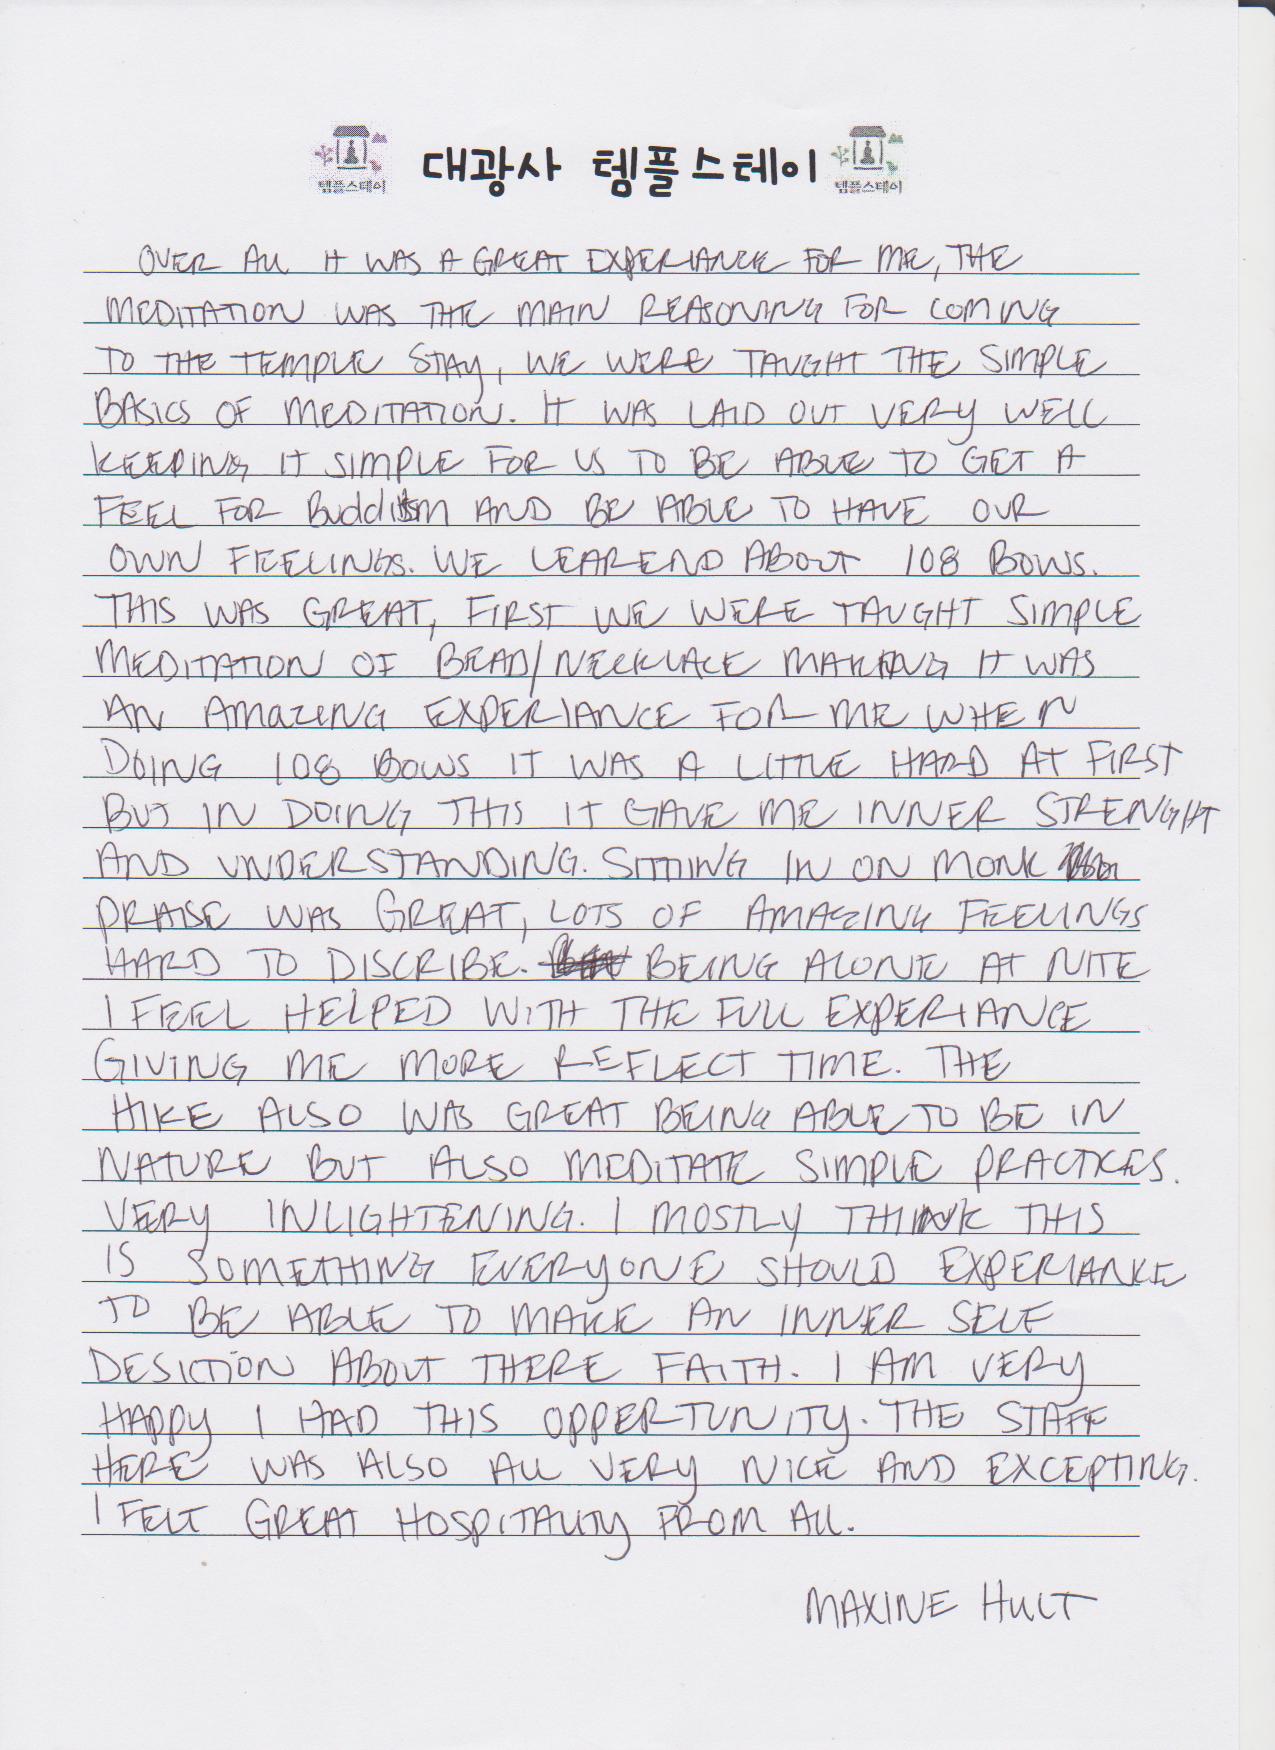 대광사 템플스테이
템플스테이
템플스테이
OVER ALL IT WAS A GREAT EXPERIANCE FOR ME, THE
MEDITATION WAS THE MAIN REASONING FOR COMING
TO THE TEMPLE STAY, WE WERE TAUGHT THE SIMPLE
BASICS OF MEDITATION. IT WAS LAID OUT VERY WELL
KEEPING IT SIMPLE FOR US TO BE ABLE TO GET A
FEEL FOR Buddism AND BE ABLE TO HAVE OUR
OWN FEELINGS. WE LEAREND ABOUT 108 BOWS.
THIS WAS GREAT, FIRST WE WERE TAUGHT SIMPLE
MEDITATION OF BEAD/NECKLACE MAKING IT WAS
AN AMAZING EXPERIANCE FOR ME WHEN
DOING 108 BOWS IT WAS A LITTLE HARD AT FIRST
BUT IN DOING THIS IT GAVE ME INNER STRENGHT
AND UNDERSTANDING. SITTING IN ON MONK
PRAISE WAS GREAT, LOTS OF AMAZING FEELINGS
HARD TO DISCRIBE. BEING ALONE AT NITE
I FEEL HELPED WITH THE FULL EXPERIANCE
GIVING ME MORE REFLECT TIME. THE
HIKE ALSO WAS GREAT BEING ABLE TO BE IN
NATURE BUT ALSO MEDITATE SIMPLE PRACTICES.
VERY INLIGHTENING. I MOSTLY THINK THIS
IS SOMETHING EVERYONE SHOULD EXPERIANCE
TO BE ABLE TO MAKE AN INNER SELF
DESICTION ABOUT THERE FAITH. I AM VERY
HAPPY I HAD THIS OPPERTUNITY. THE STAFF
HERE WAS ALSO ALL VERY NICE AND EXCEPTING.
I FELT GREAT HOSPITALITY FROM ALL.
MAXINE HULT